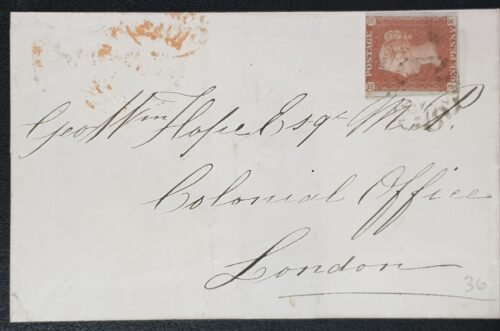 POSTAGE
ONE PENNY
Geo Wm Hope Esqr M.P.
Colonial Office
London
36